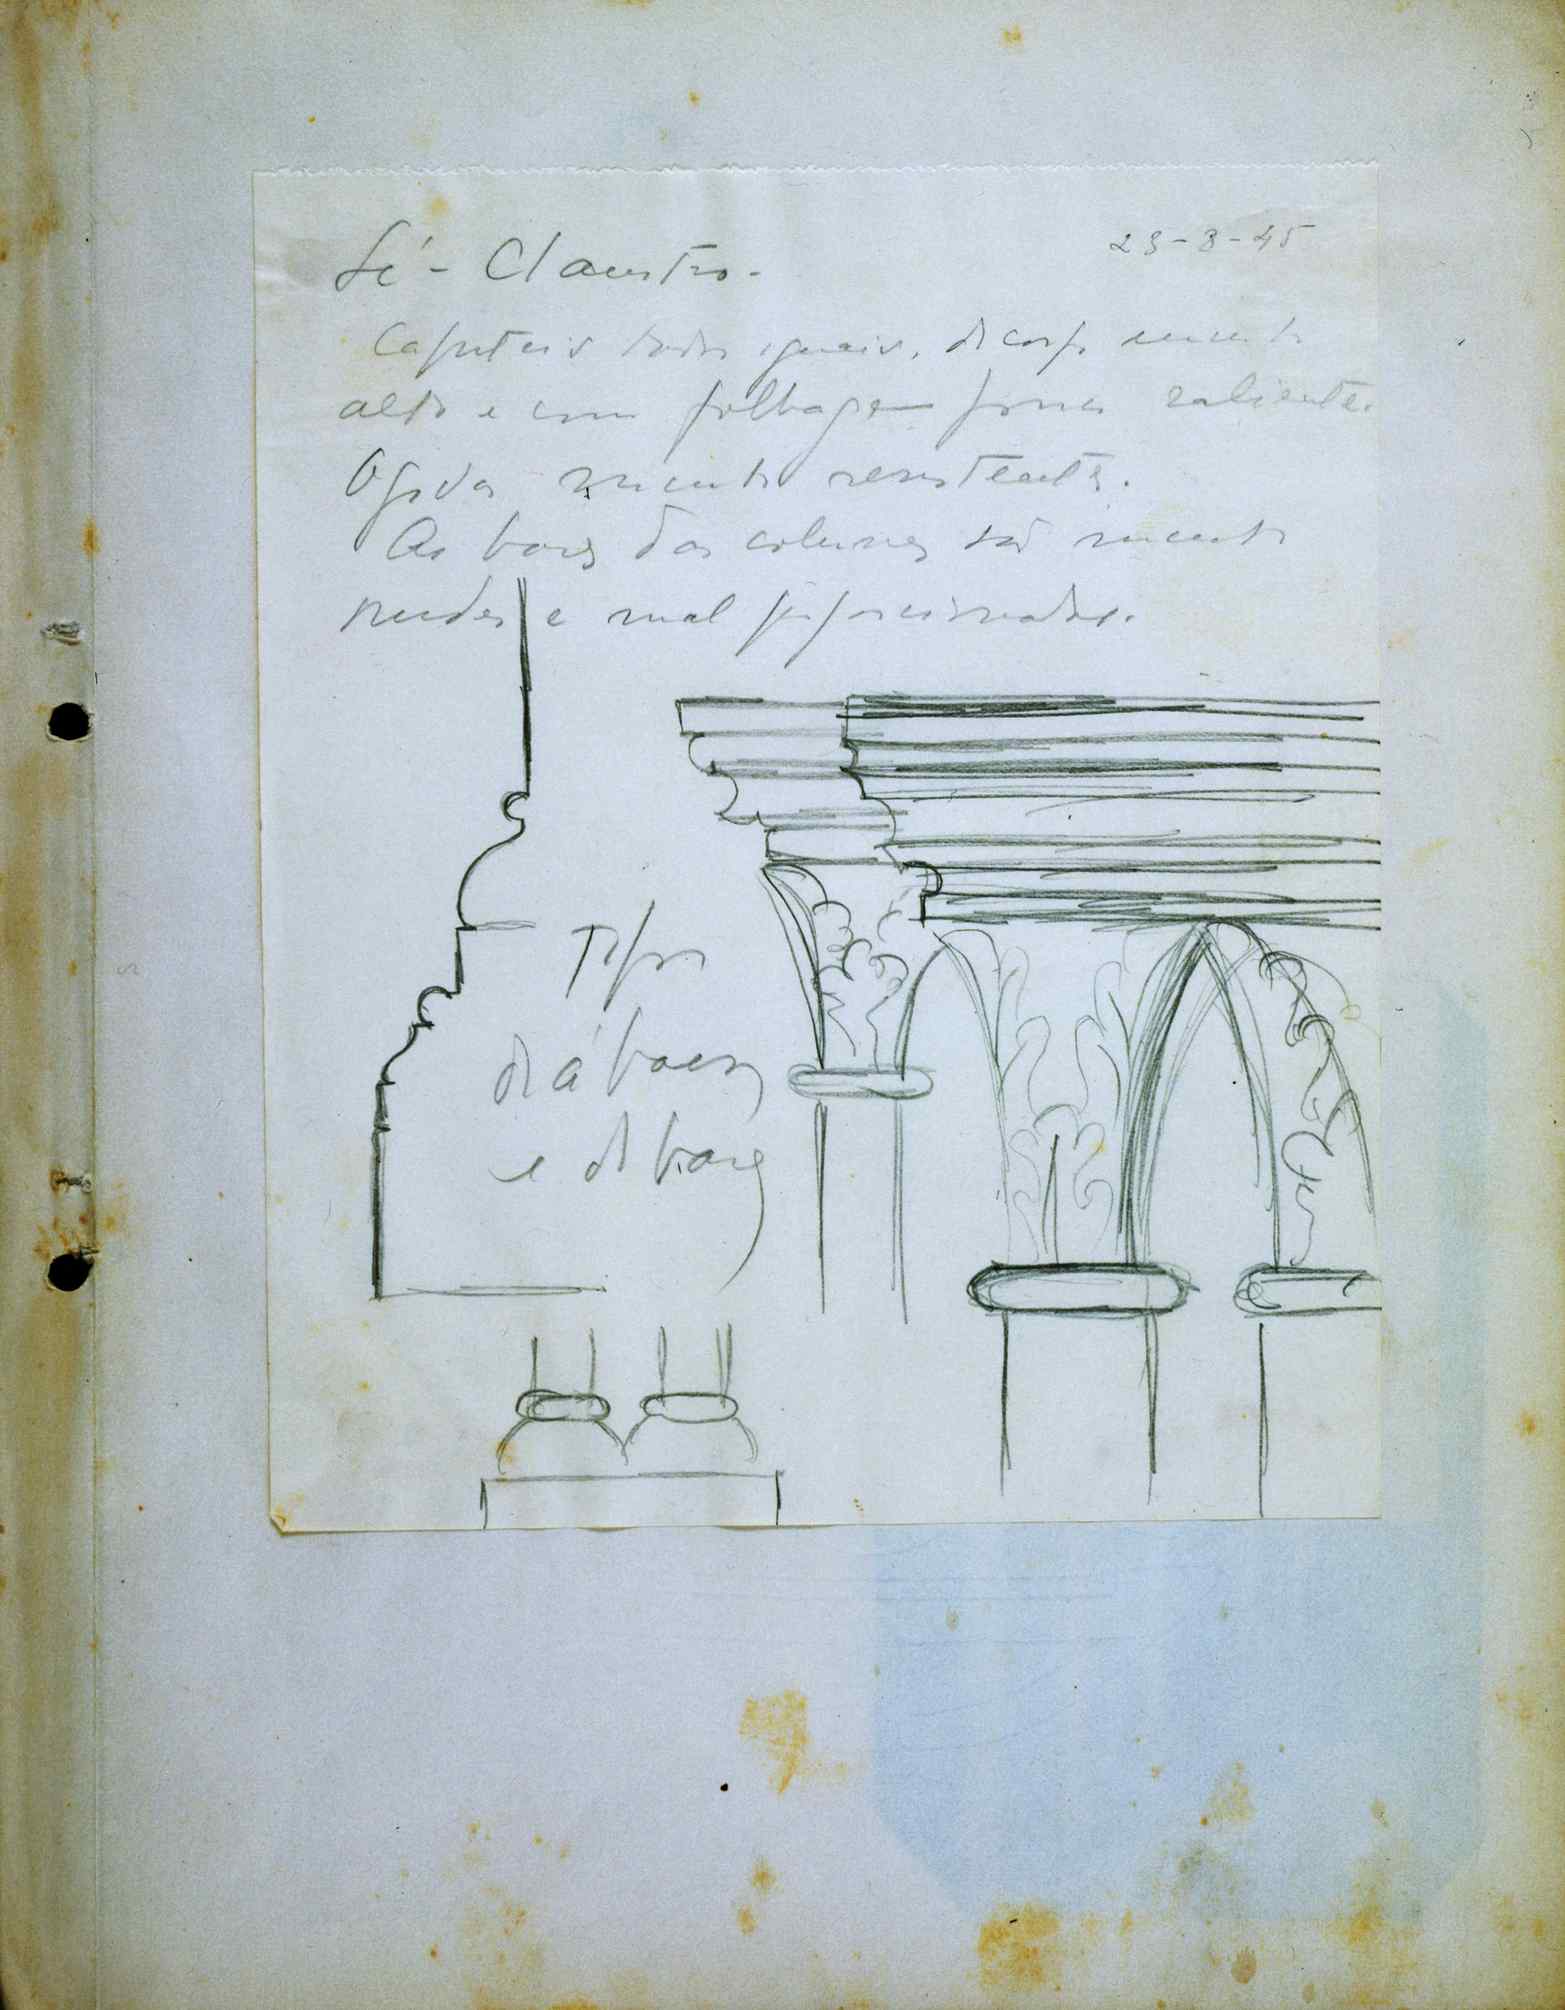 Sé - Claustro.
23-8-45
Capiteis todos iguais, de corpo muito
alto e com folhagem pouco saliente.
Ogivas muito resistentes.
As bases das colunas são muito
rudes e mal proporcionadas.
Tipos
de ábacos
e de bases